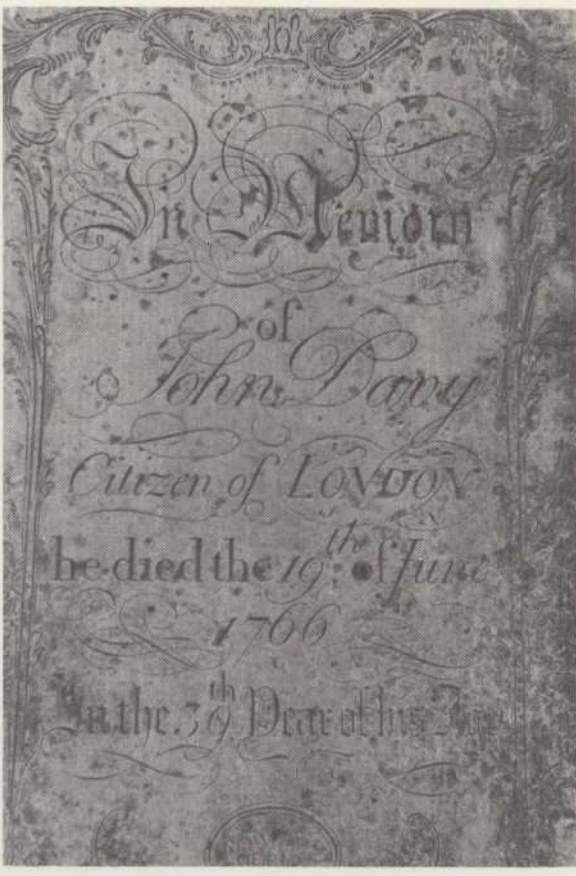 In Memory
of
John Davy
Citizen of LONDON
he died the 19th of June
1766
In the 39th Year of his Age